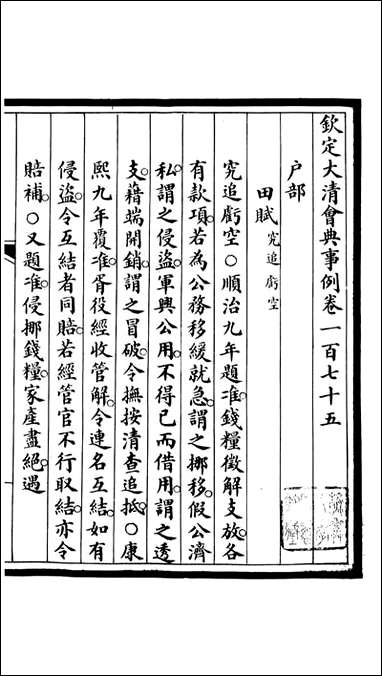 欽定大清會典事例卷一百七十五
户部
田賦究追虧空
究追虧空○順治九年題准錢糧徵解支放各
有款項若為公務移緩就急謂之挪移假公濟
私謂之侵盜軍興公用不得已而借用謂之透
支藉端開銷謂之冒破令撫按清查追抵○康
熙九年覆准胥役經收管解令連名互結如有
侵盜令互結者同賠若經管官不行取結亦令
賠補○又題准侵挪錢糧家產盡絕遇